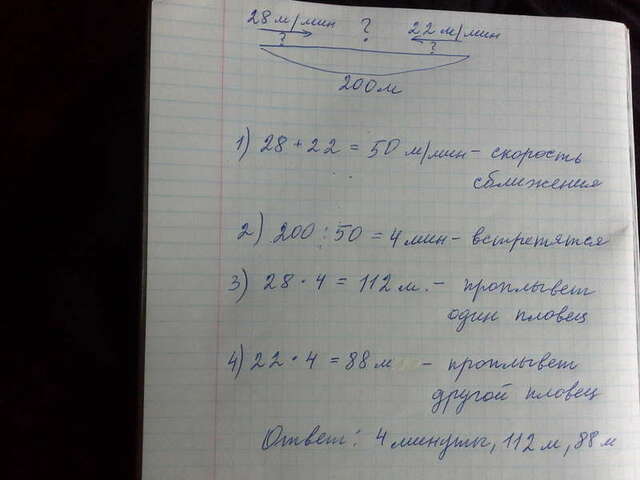 28 м/мин ? 22 м/мин
? ?
200 м
1) 28 + 22 = 50 м/мин - скорость
сближения
2) 200 : 50 = 4 мин - встретятся
3) 28 · 4 = 112 м. - проплывет
один пловец
4) 22 · 4 = 88 м - проплывет
другой пловец
Ответ: 4 минуты, 112 м, 88 м